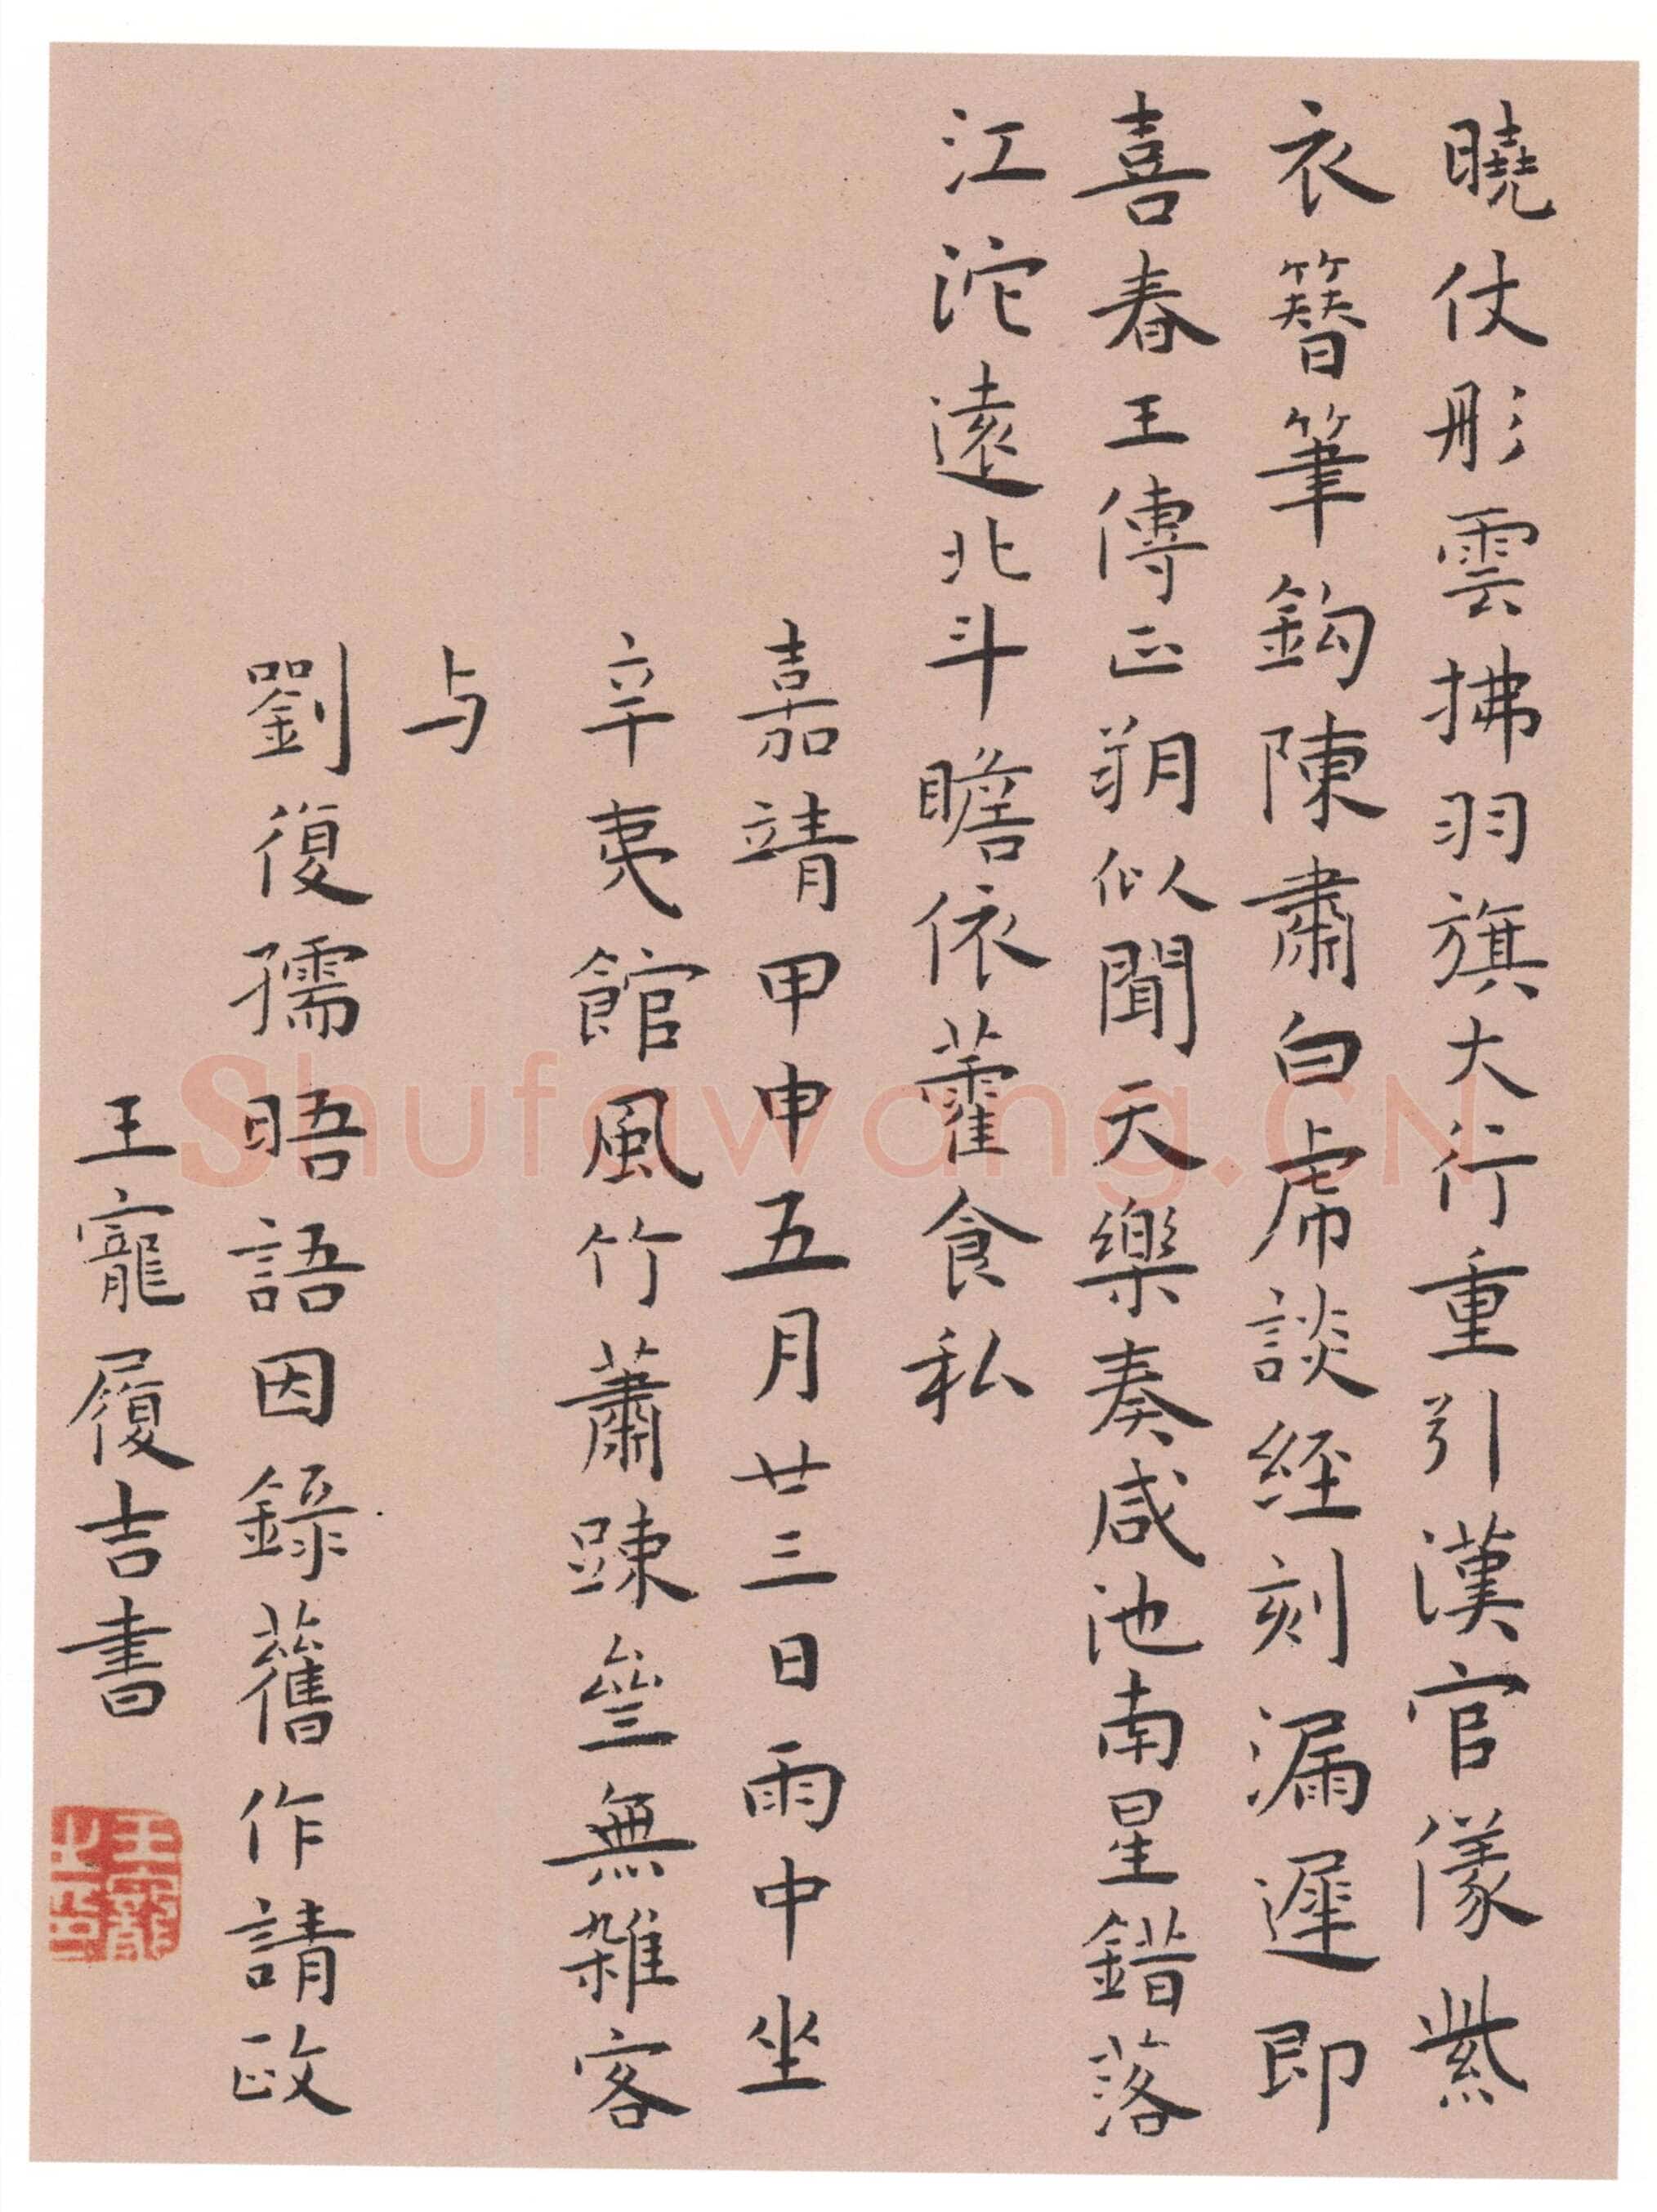 曉仗彤雲拂羽旗大行重引漢官儀紫
衣簪筆鈎陳肅白虎談經刻漏遲即
喜春王傳正朔似聞天樂奏咸池南星錯落
江沱遠北斗瞻依藿食私
嘉靖甲申五月廿三日雨中坐
辛夷館風竹蕭踈坐無雜客
与
劉復孺晤語因錄舊作請政
王寵履吉書
王寵之印
Shufawang.CN